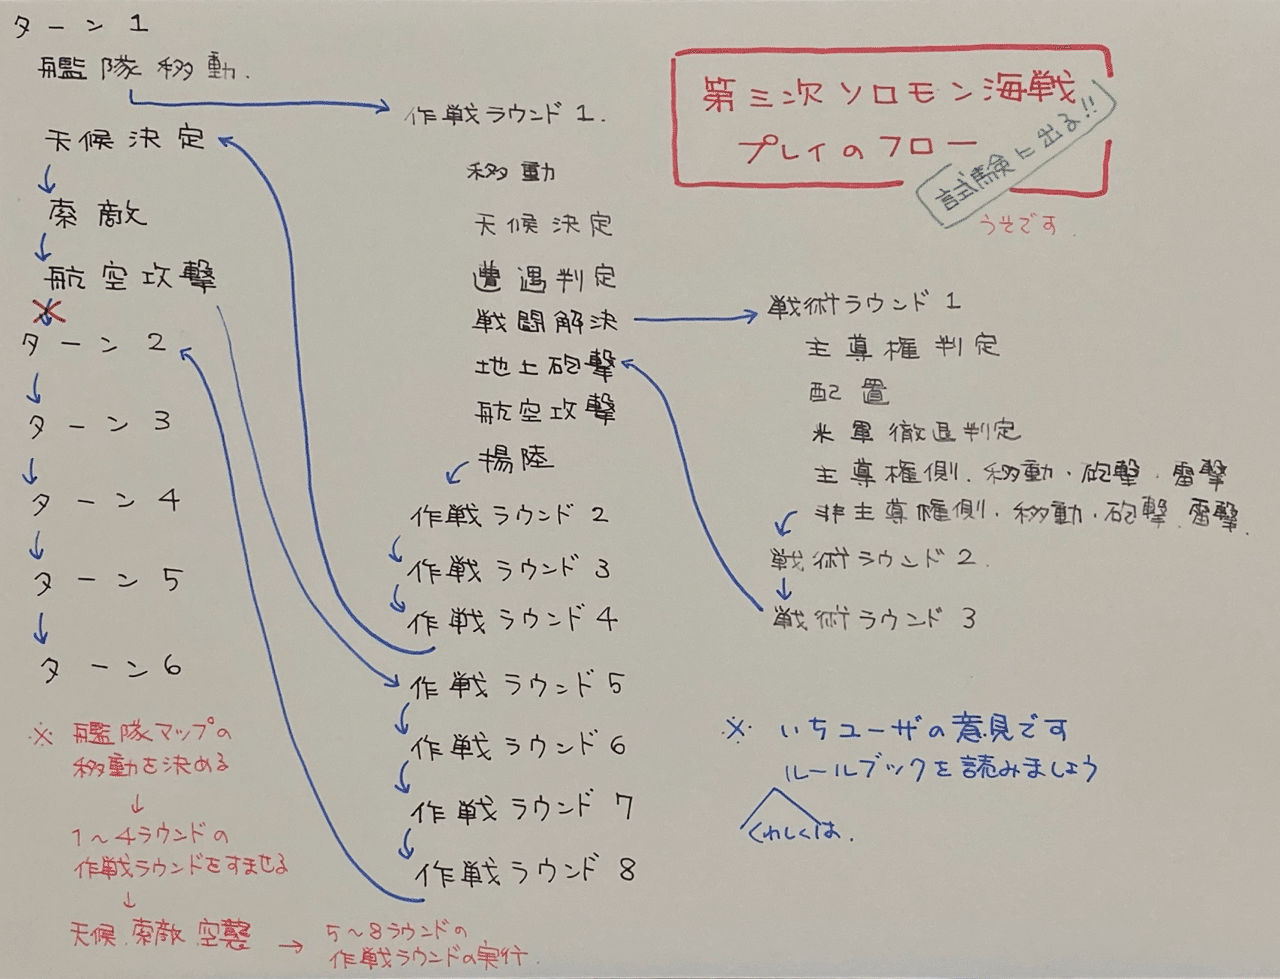 ターン1
艦隊移動.
天候決定
索敵
航空攻撃
ターン2
ターン3
ターン4
ターン5
ターン6
※ 艦隊マップの
移動を決める
1〜4ラウンドの
作戦ラウンドをすませる
天候.索敵.空襲
5〜8ラウンドの
作戦ラウンドの実行.
作戦ラウンド1.
移動
天候決定
遭遇判定
戦闘解決
地上砲撃
航空攻撃
揚陸
作戦ラウンド2
作戦ラウンド3
作戦ラウンド4
作戦ラウンド5
作戦ラウンド6
作戦ラウンド7
作戦ラウンド8
第三次ソロモン海戦
プレイのフロー
試験に出る!!
うそです.
戦術ラウンド1
主導権判定
配置
米軍徹退判定
主導権側.移動・砲撃・雷撃
非主導権側・移動・砲撃.雷撃.
戦術ラウンド2.
戦術ラウンド3
※ いちユーザの意見です
ルールブックを読みましょう
くわしくは.